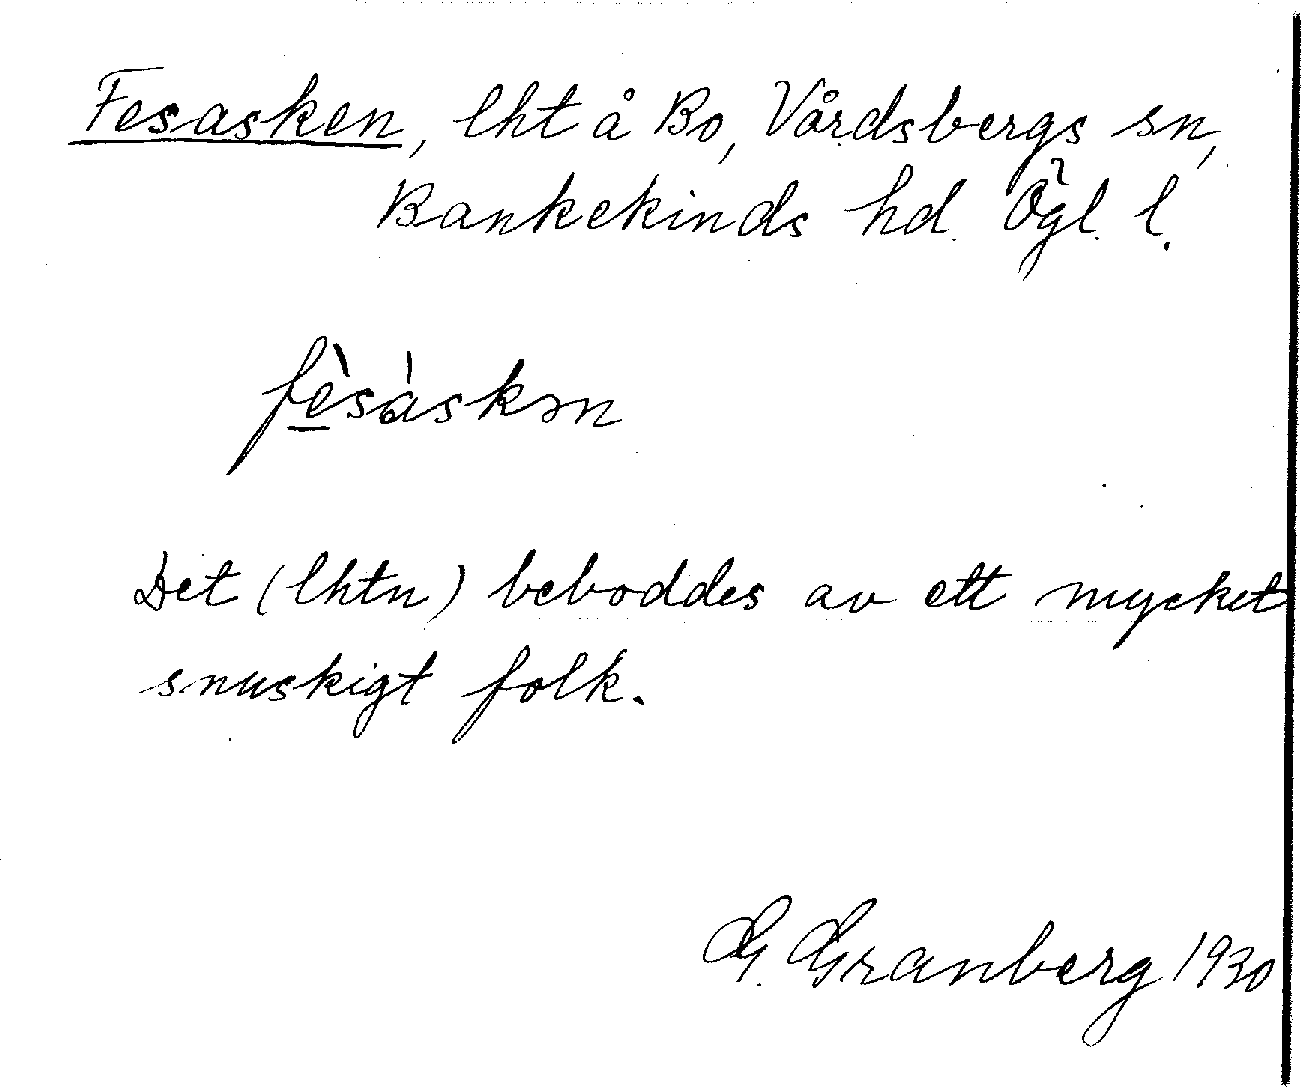 Fesasken, lht å Bo, Vårdsbergs sn,
Bankekinds hd. Ögl. l.
fe̠̍sàskɘn
Det (lhtn) beboddes av ett mycket
snuskigt folk.
G. Granberg 1930